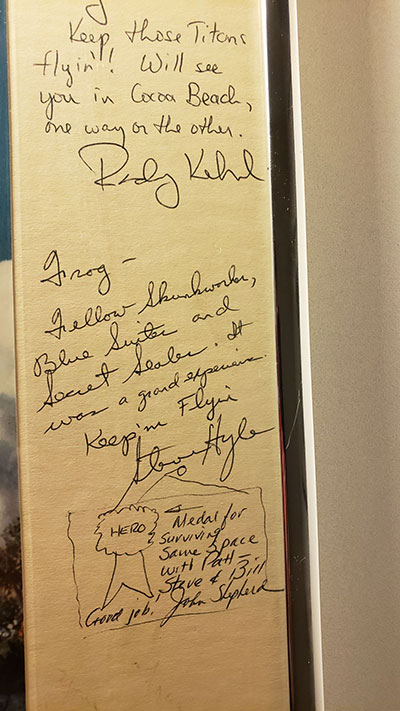 Keep those Titans
flyin'!! Will see
you in Cocoa Beach,
one way or the other.
Randy
Frog -
Fellow Skunkworker,
Blue Suiter and
Secret Sealer. It
was a grand experience.
Keep'm Flyin
Steve Hyle
HERO
Medal for
Surviving
Same Space
with Patt -
Steve & Bill
Good job! John Shepherd